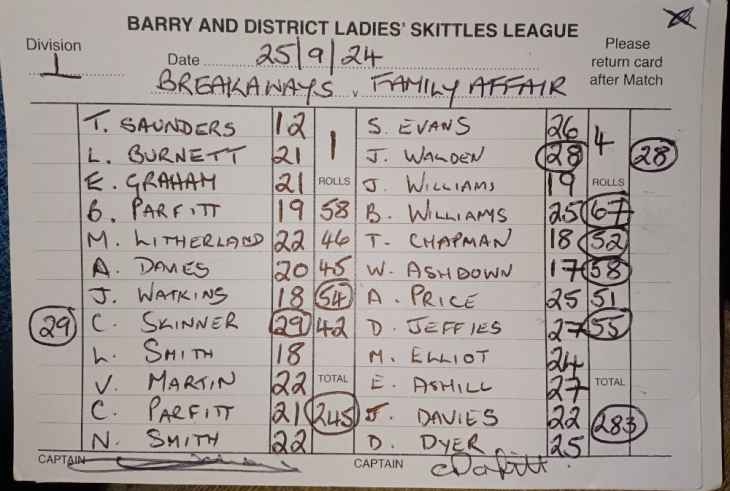 BARRY AND DISTRICT LADIES' SKITTLES LEAGUE
Division 1
Date 25/9/24
Please return card after Match
BREAKAWAYS v FAMILY AFFAIR
T. SAUNDERS 12 1 S. EVANS 26 4
L. BURNETT 21 J. WALDEN 28 28
E. GRAHAM 21 ROLLS J. WILLIAMS 19 ROLLS
G. PARFITT 19 58 B. WILLIAMS 25 67
M. LITHERLAND 22 46 T. CHAPMAN 18 52
A. DAVIES 20 45 W. ASHDOWN 17 58
J. WATKINS 18 54 A. PRICE 25 51
29 C. SKINNER 29 42 D. JEFFIES 27 55
L. SMITH 18 M. ELLIOT 24
V. MARTIN 22 TOTAL E. ASHILL 27 TOTAL
C. PARFITT 21 245 J. DAVIES 22 283
N. SMITH 22 D. DYER 25
CAPTAIN CAPTAIN CParfitt.